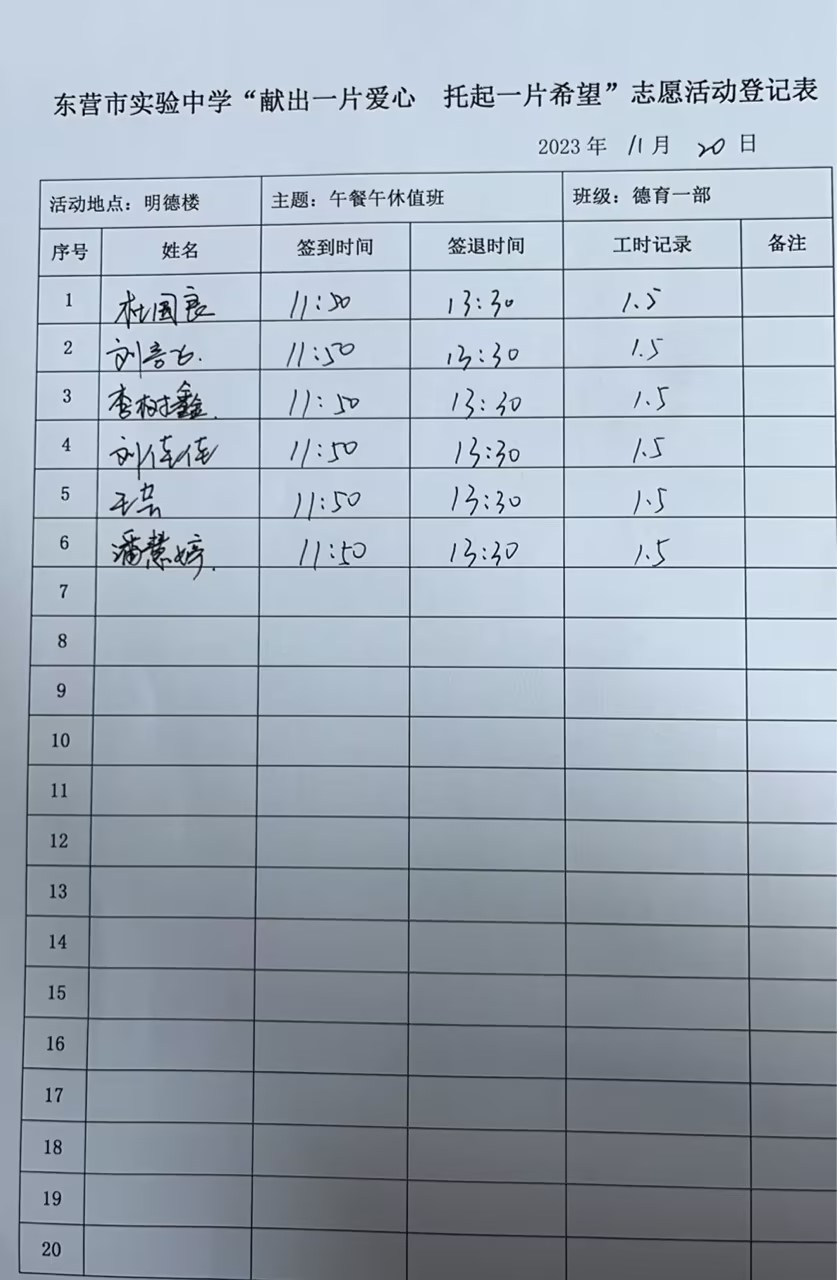 东营市实验中学“献出一片爱心 托起一片希望”志愿活动登记表
2023 年 11 月 20 日
活动地点：明德楼 主题：午餐午休值班 班级：德育一部
序号 姓名 签到时间 签退时间 工时记录 备注
1 杜国良 11:50 13:30 1.5
2 刘 11:50 13:30 1.5
3 李树鑫. 11:50 13:30 1.5
4 刘佳佳 11:50 13:30 1.5
5 王芸 11:50 13:30 1.5
6 潘慧婷. 11:50 13:30 1.5
7
8
9
10
11
12
13
14
15
16
17
18
19
20